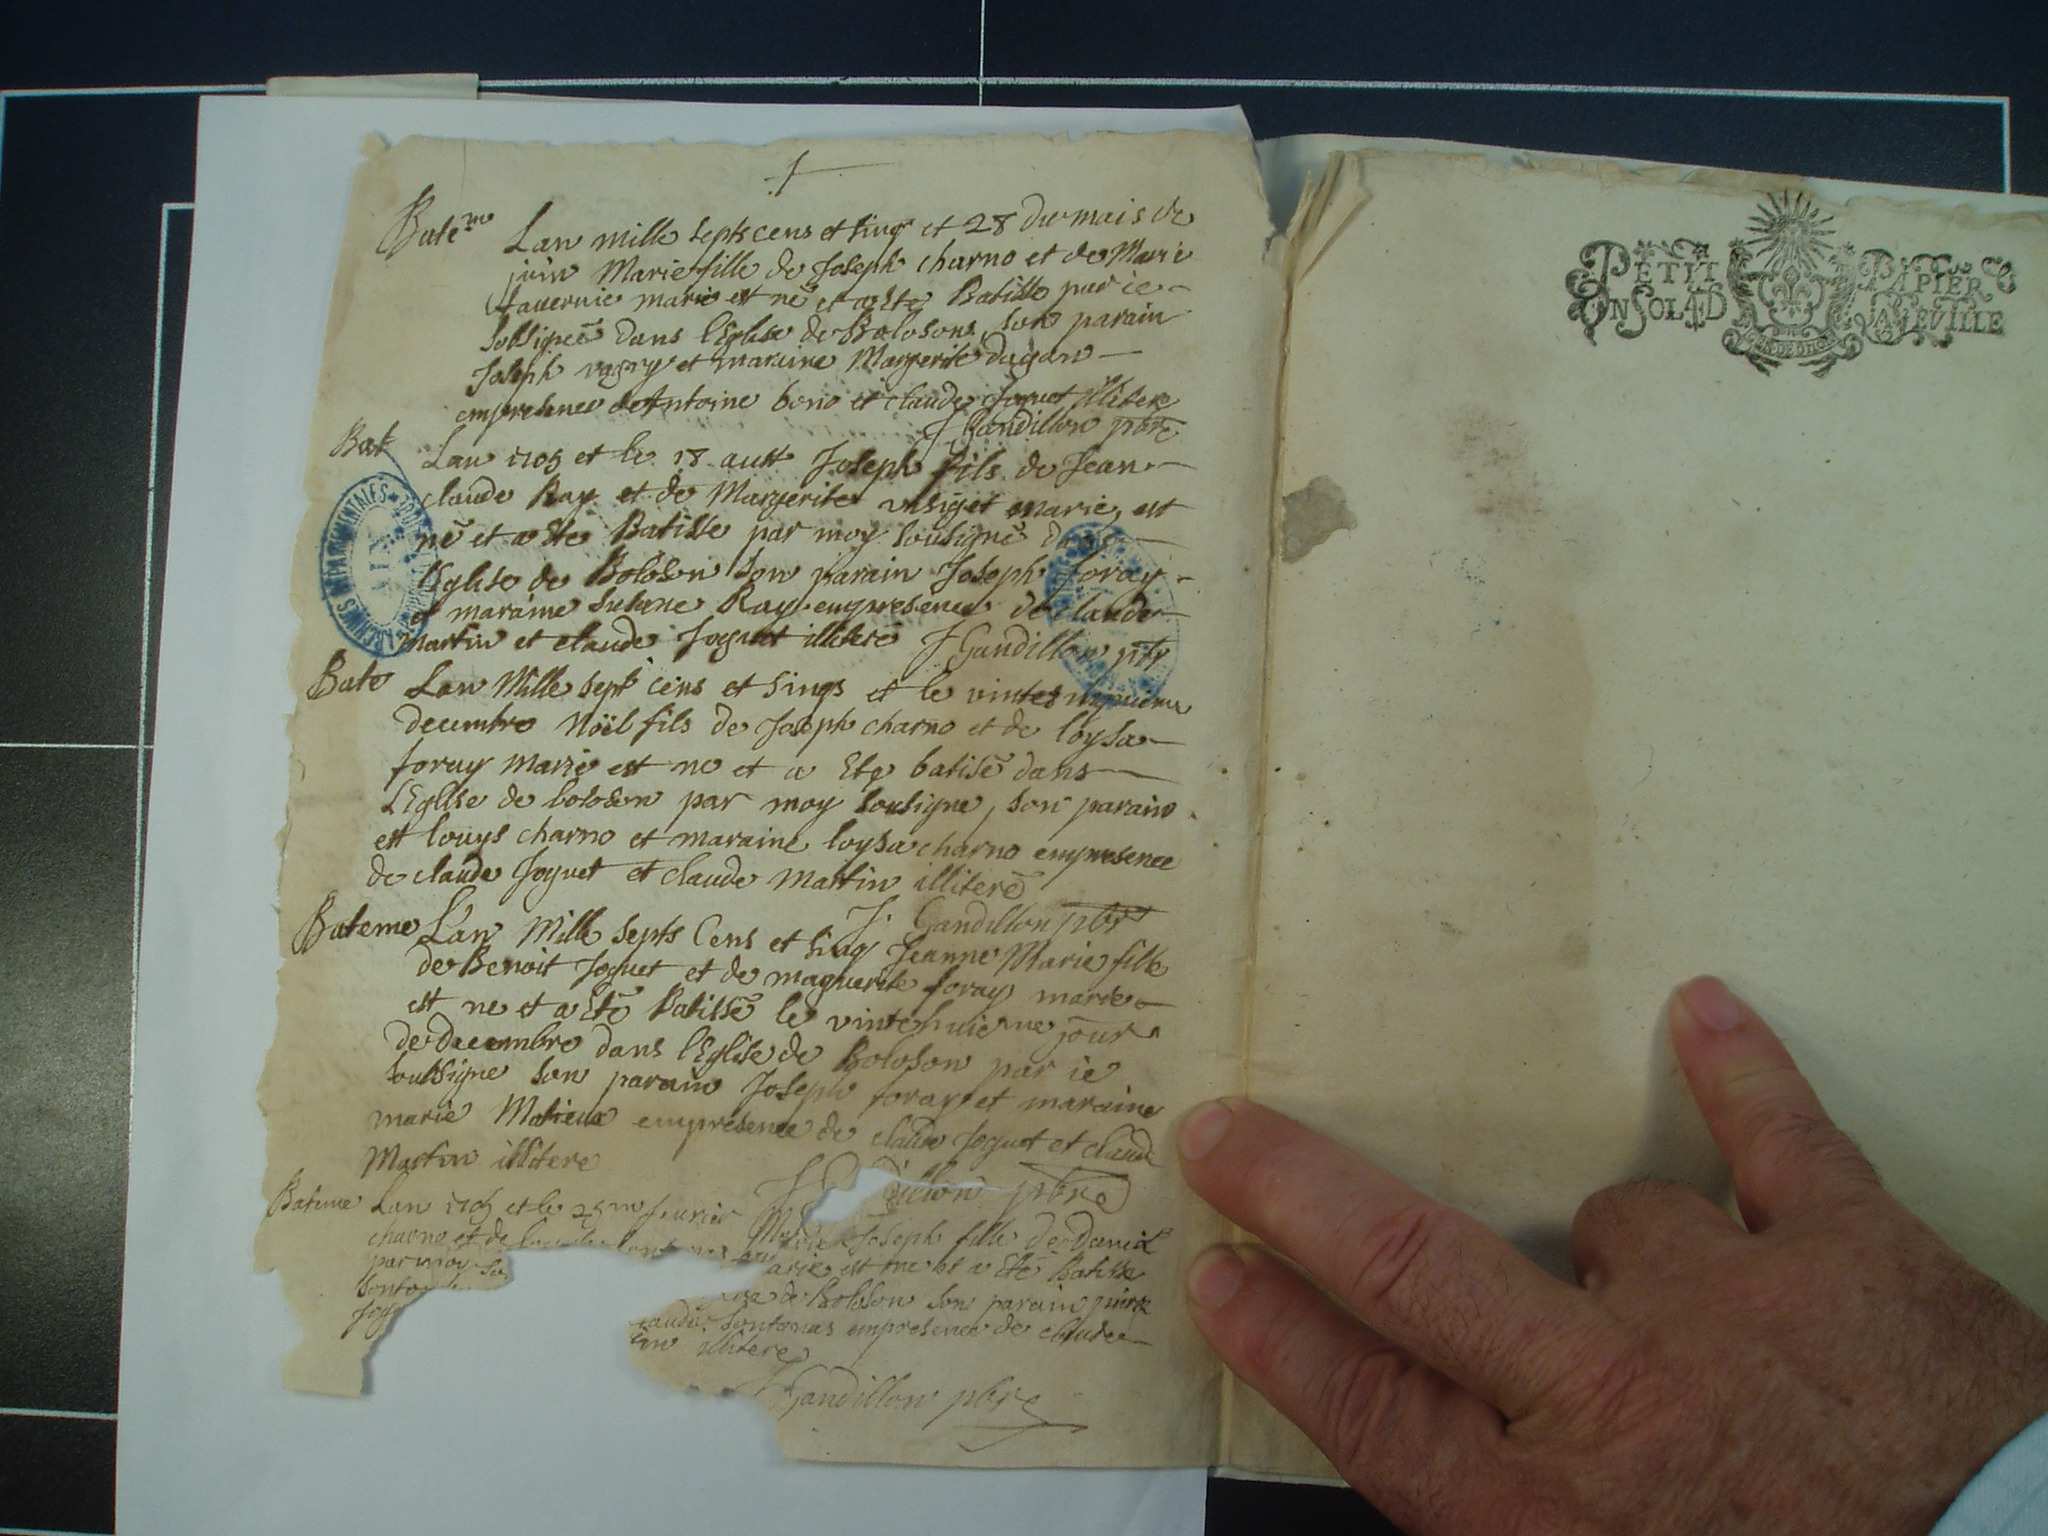 Bate.me Lan mille septs cens et sinq et 28 du mais de
juin Marie fille de Joseph charno et de Marie
tauernie marie est ne et a Este Batisse par ie
soussigne dans l'Eglise de Bolosons son parain
Joseph et maraine Margerite
empresence de Antoine et claude Joguet illitere
J Gandillon pbre
Bat Lan 1705 et le 18 autt Joseph fils de Jean
claude Ray et de Margerite marie, est
né et a Ete Batisse par moy sousigne dans
l'Eglise de Boloson son parain Joseph foray
et maraine susane Ray empresence de claude
Martin et claude Joguet illitere J Gandillon pbr
Bate Lan Mille sept cens et sinqs et le
decembre Noël fils de Joseph charno et de loysa
foray marié est ne et a Ete batisé dans
l'Eglise de boloson par moy sousigne, son parain
est louys charno et maraine loysa charno empresence
de claude Joguet et claude Martin illiteré
J. Gandillon pbr
Bateme L'an Mille septs Cens et sinq Jeanne Marie fille
de Benoit Joguet et de maguerite foray marie
est ne et a Eté Batissé le vintehuieme jour
de Decembre dans l'Eglise de Boloson par ie
soussigne son parain Joseph foray et maraine
marie Matieux empresence de claude Joguet et claude
Martin illitere
dillon pbre
Bateme Lan 1705 et le 25me feurier Joseph fille de Daniel
charno et de arie est ne et a Eté Batisse
par moy so de Boloson son parain
aude fontanas empresence de claude
Jog tin illitere
Gandillon pbre
PETIT PAPIER
UN SOL A D LA FEUILLE
ARCHIVES DÉPARTEMENTALES
AIN